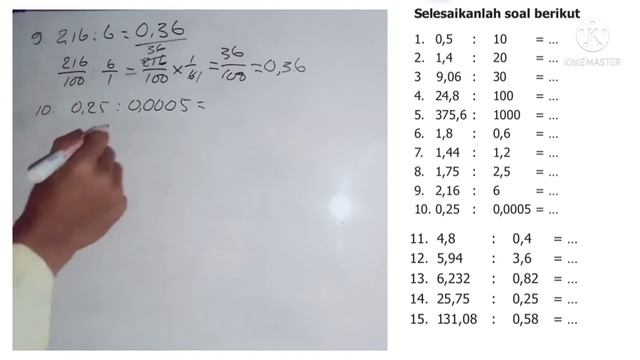 9 2,16 : 6 = 0,36
216/100 : 6/1 = 36 216/100 × 1/6 1 = 36/100 = 0,36
10. 0,25 : 0,0005 =
Selesaikanlah soal berikut
1. 0,5 : 10 = ...
2. 1,4 : 20 = ...
3 9,06 : 30 = ...
4. 24,8 : 100 = ...
5. 375,6 : 1000 = ...
6. 1,8 : 0,6 = ...
7. 1,44 : 1,2 = ...
8. 1,75 : 2,5 = ...
9. 2,16 : 6 = ...
10. 0,25 : 0,0005 = ...
11. 4,8 : 0,4 = ...
12. 5,94 : 3,6 = ...
13. 6,232 : 0,82 = ...
14. 25,75 : 0,25 = ...
15. 131,08 : 0,58 = ...
KINEMASTER